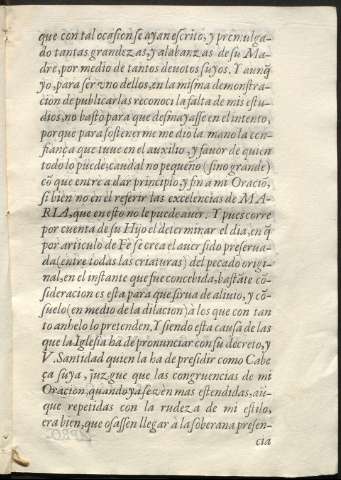 que con tal ocasion se ayan escrito, y promulga-
do tantas grandezas, y alabanzas de su Ma-
dre, por medio de tantos deuotos suyos. Y aunq̃
yo, para ser vno dellos, en la misma demonstra-
cion de publicarlas reconoci la falta de mis estu-
dios, no bastò para que desmayasse en el intento,
porque para sostenerme me dio la mano la con-
fiança que tuue en el auxilio, y fauor de quien
todo lo puede; caudal no pequeño (sino grande)
cõ que entre a dar principio, y fin a mi Oraciõ,
si bien no en el referir las excelencias de MA-
RIA, que en esto no le puede auer. Y pues corre
por cuenta de su Hijo el determinar el dia, en q̃
por articulo de Fè se crea el auer sido preserua-
da (entre todas las criaturas) del pecado origi-
nal, en el instante que fue concebida; bastãte cõ-
sideracion es esta para que sirua de aliuio, y cõ-
suelo (en medio de la dilacion) à los que con tan
to anhelo lo pretenden. Y siendo esta causa de las
que la Iglesia ha de pronunciar con su decreto, y
V. Santidad quien la ha de presidir como Cabe
ça suya, juzgue que las congruencias de mi
Oracion, quando yà se vèn mas estendidas, aũ-
que repetidas con la rudeza de mi estilo,
era bien, que osassen llegar à la soberana presen-
cia